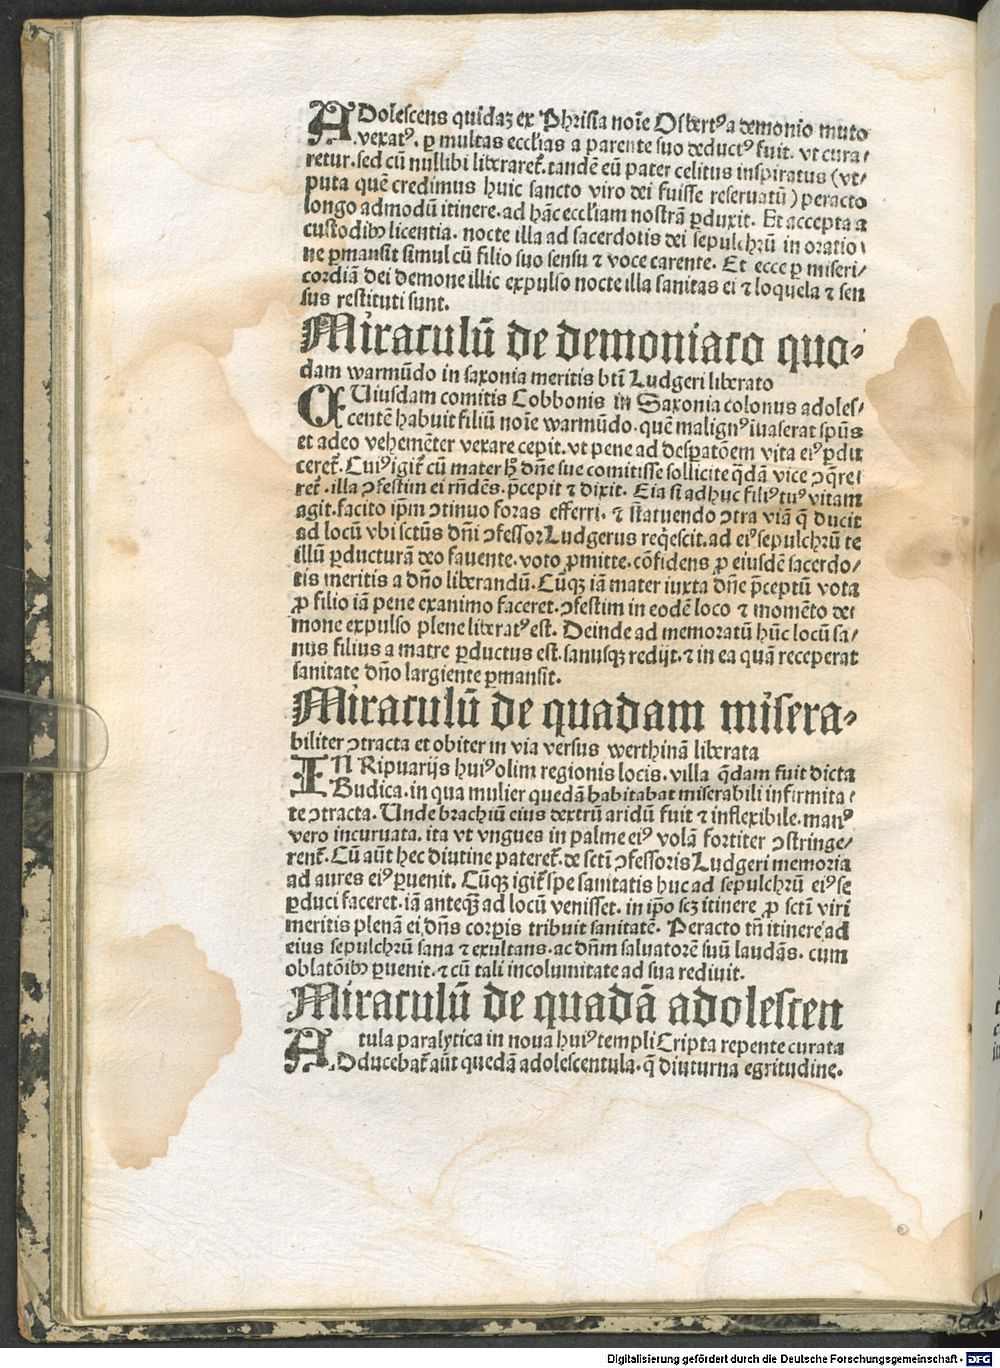 ADolescens quidaꝫ ex Phrisia noīe Osbertꝰ a demonio muto
vexatꝰ. ꝑ multas eccl̄ias a parente suo deductꝰ fuit. vt cura⸗
retur. sed cū nullibi liberaret̄. tandē eū pater celitus inspiratus (vt⸗
puta quē credimus huic sancto viro dei fuisse reseruatū) peracto
longo admodū itinere. ad hāc eccl̄iam nostrā ꝑduxit. Et accepta a
custodibꝰ licentia. nocte illa ad sacerdotis dei sepulchrū in oratio⸗
ne ꝑmansit simul cū filio suo sensu ⁊ voce carente. Et ecce ꝑ miseri⸗
cordiā dei demone illic expulso nocte illa sanitas ei ⁊ loquela ⁊ sen
sus restituti sunt.
Miraculū de demoniaco quo⸗
dam warmūdo in saxonia meritis bt̄i Ludgeri liberato
CUiusdam comitis Cobbonis in Saxonia colonus adoles⸗
centē habuit filiū noīe warmūdo. quē malignꝰ īuaserat sp̄us
et adeo vehemēter vexare cepit. vt pene ad desꝑatōem vita eiꝰ ꝑdu
ceret̄. Cuiꝰ igit̄ cū mater hꝫ dn̄e sue comitisse sollicite q̄dā vice ꝯq̄re
ret̄. illa ꝯfestim ei rn̄dēs. p̄cepit ⁊ dixit. Eia si adhuc filiꝰ tuꝰ vitam
agit. facito ip̄m ꝯtinuo foras efferri. ⁊ statuendo ꝯtra viā q̄ ducit
ad locū vbi sctūs dn̄i ꝯfessor Ludgerus req̄escit. ad eiꝰ sepulchrū te
illū ꝑducturā deo fauente. voto ꝓmitte. cōfidens ꝓ eiusdē sacerdo⸗
tis meritis a dn̄o liberandū. Cūqꝫ iā mater iuxta dn̄e p̄ceptū vota
ꝓ filio iā pene exanimo faceret. ꝯfestim in eodē loco ⁊ momēto de⸗
mone expulso plene liberatꝰ est. Deinde ad memoratū hūc locū sa⸗
nus filius a matre ꝑductus est. sanusqꝫ redijt. ⁊ in ea quā receperat
sanitate dn̄o largiente ꝑmansit.
Miraculū de quadam misera⸗
biliter ꝯtracta et obiter in via versus werthinā liberata
IN Ripuarijs huiꝰ olim regionis locis. villa q̄dam fuit dicta
Budica. in qua mulier quedā habitabat miserabili infirmita⸗
te ꝯtracta. Unde brachiū eius dextrū aridū fuit ⁊ inflexibile. manꝰ
vero incuruata. ita vt vngues in palme eiꝰ volā fortiter ꝯstringe⸗
rent̄. Cū aūt hec diutine pateret̄. de scti̅ ꝯfessoris Ludgeri memoria
ad aures eiꝰ ꝑuenit. Cūqꝫ igit̄ spe sanitatis huc ad sepulchrū eiꝰ se
ꝑduci faceret. iā anteqꝫ̄ ad locū venisset. in ip̄o scꝫ itinere ꝓ scti̅ viri
meritis plenā ei dn̄s corꝑis tribuit sanitatē. Peracto tn̄ itinere ad
eius sepulchrū sana ⁊ exultans. ac dn̄m saluatorē suū laudās. cum
oblatōibꝰ ꝑuenit. ⁊ cū tali incolumitate ad sua rediuit.
Miraculū de quadā adolescen
tula paralytica in noua huiꝰ templi Cripta repente curata
ADducebat̄ aūt quedā adolescentula. q̄ diuturna egritudine.
Digitalisierung gefördert durch die Deutsche Forschungsgemeinschaft - DFG